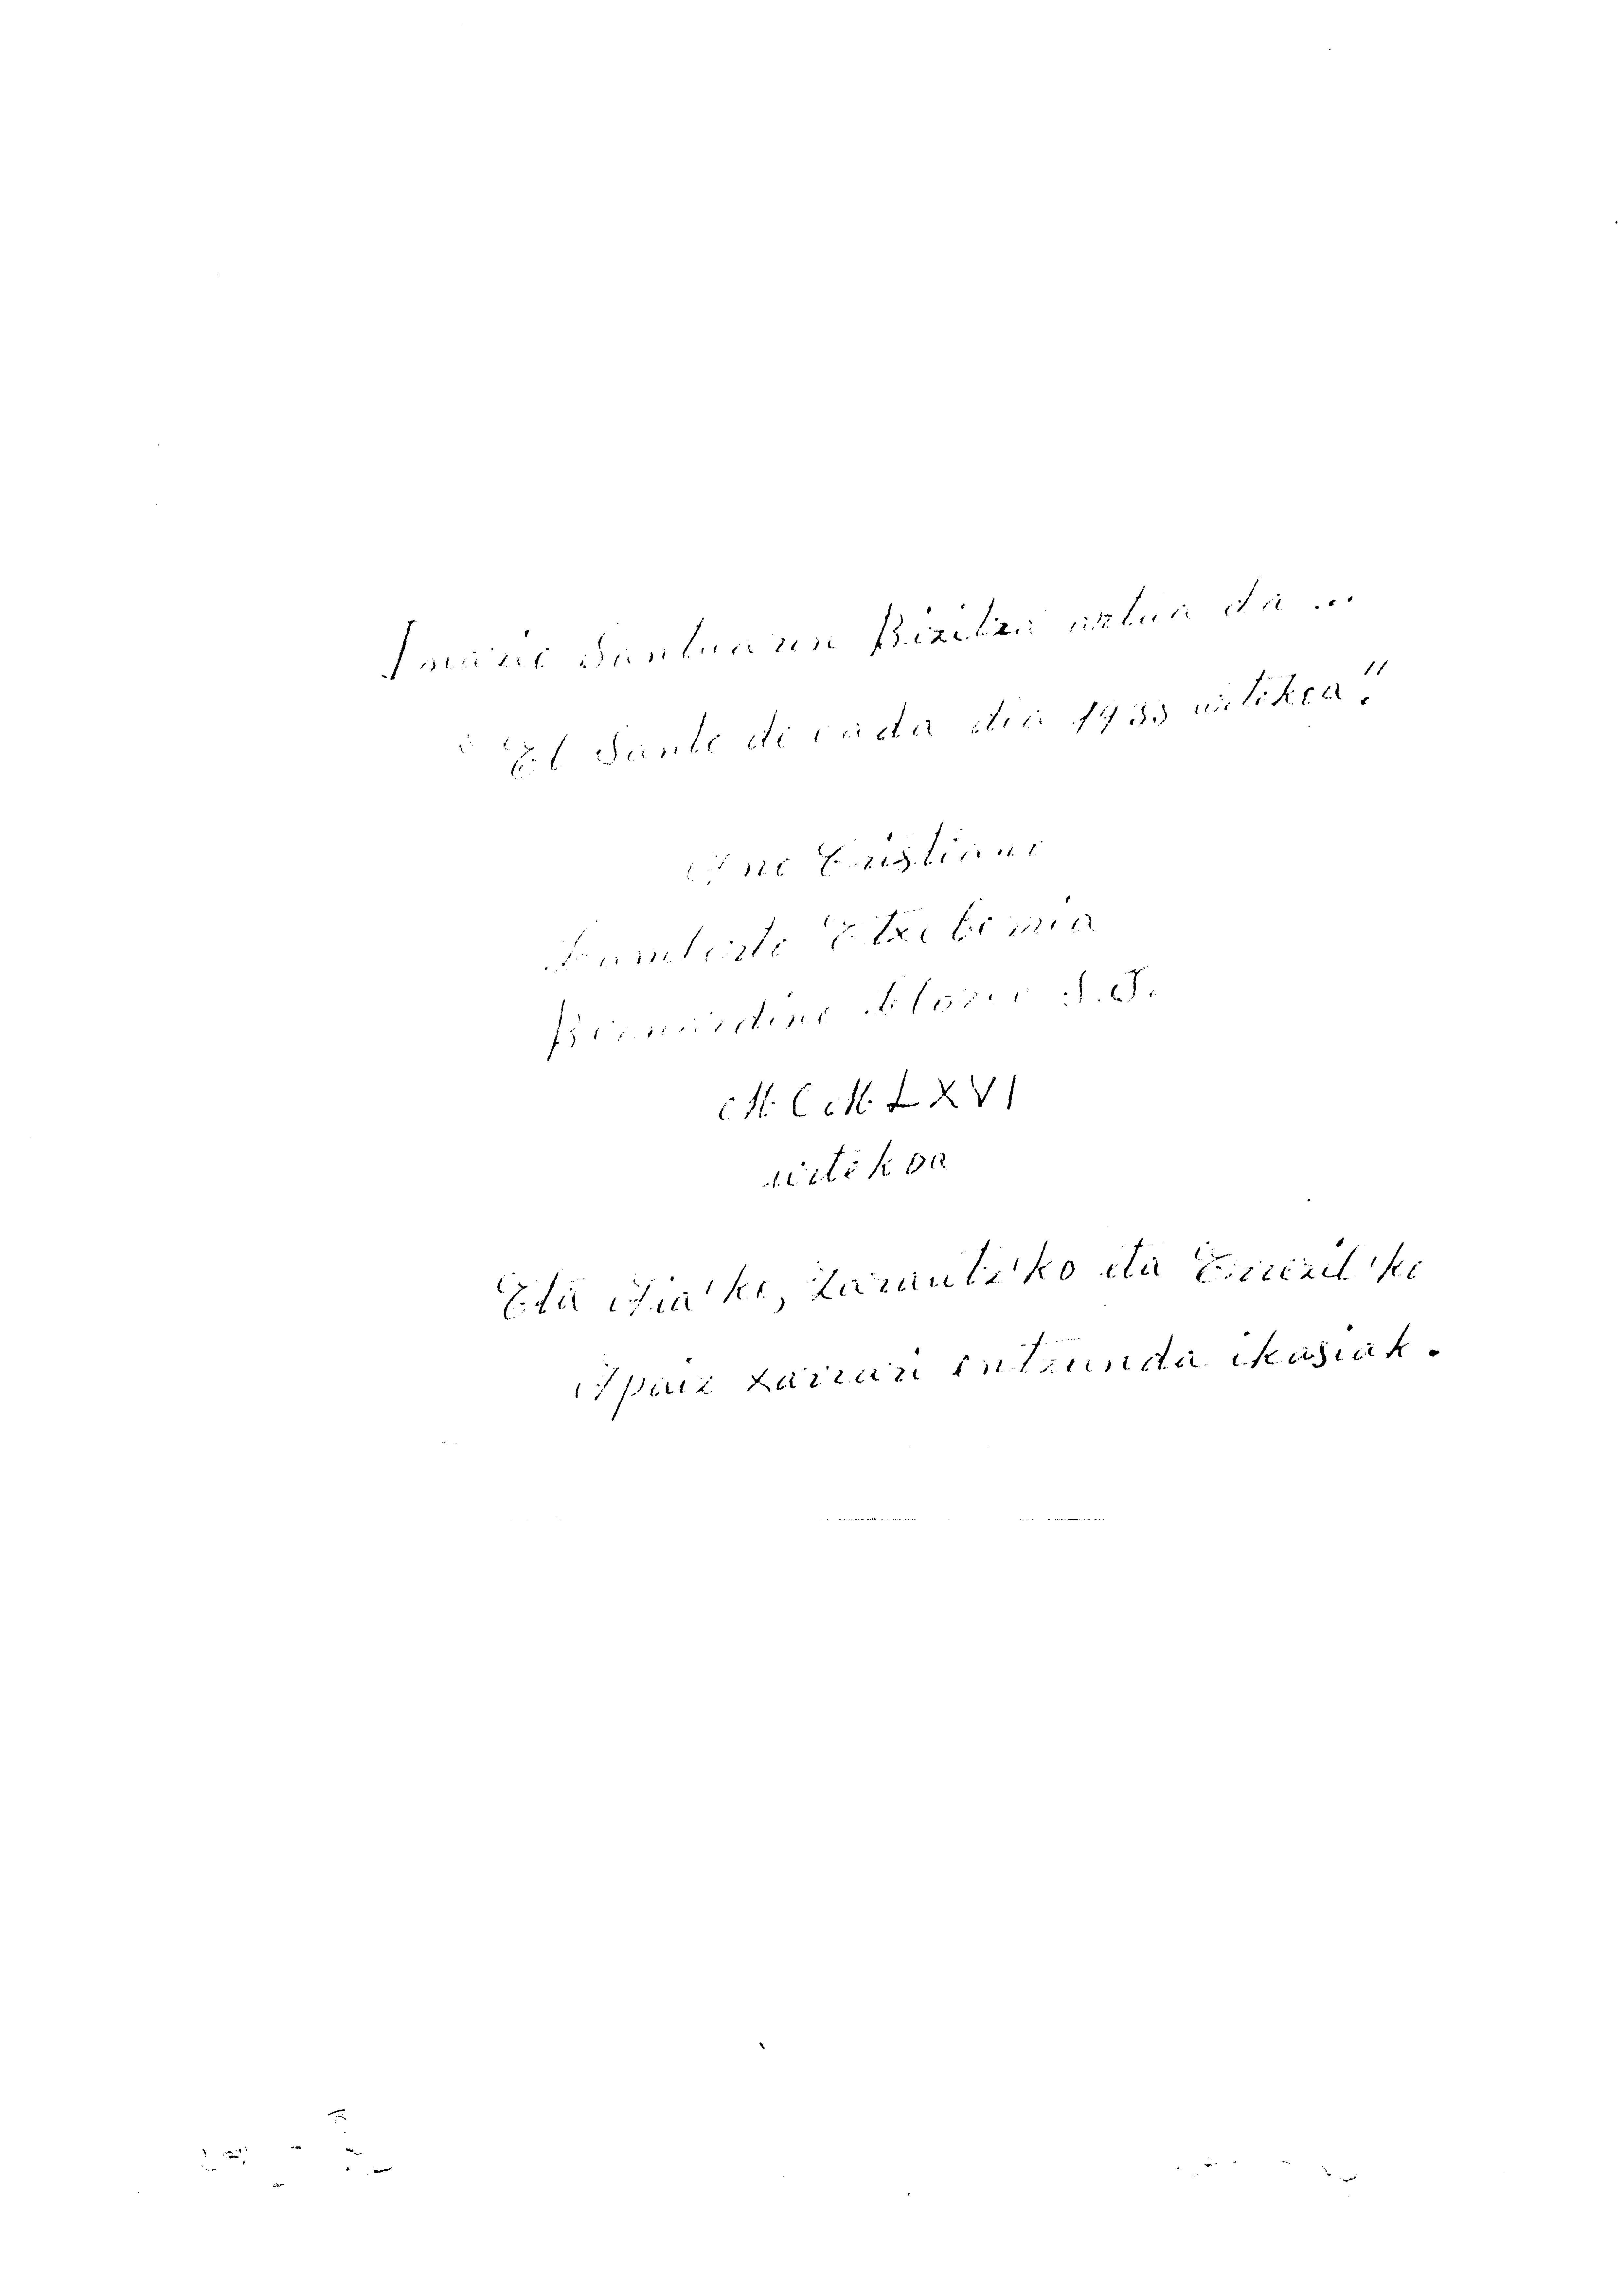 Inazio Santuaren Bizitza artua da ...
"El Santo de cada dia 1933 urtikoa."
Año Cristiano
Lamberto Etxeberria
Bernardino Llorca S.J.
MCMLXVI
urtekoa
Eta Aia'ko, Zarautz'ko eta Errezil'ko
Apaiz zarrari entzunda ikasiak.